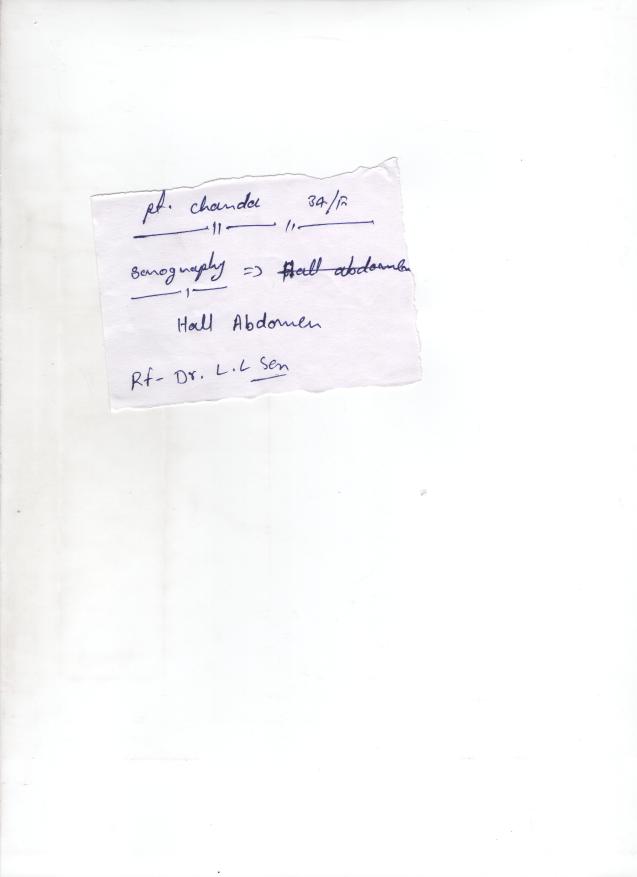 pt. chanda 34/F
Sonography => Hall abdomen
Hall Abdomen
Rf- Dr. L.L Sen